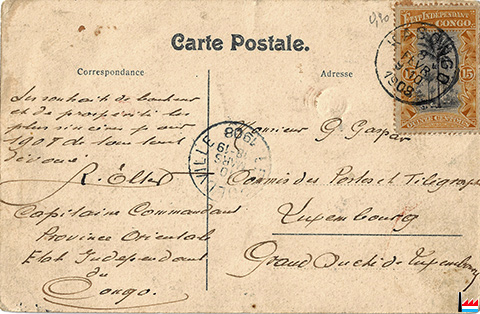 Carte Postale.
Correspondance
Adresse
ETAT INDÉPENDANT
DU CONGO
15
1908
Les souhaits de bonheur
et de prospérité les
plus sincères pour
1908 de tout
dévoué
R. Elter
Capitaine Commandant
Province Orientale
Etat Indépendant
du
Congo.
1908
18-19
MARS
10
VILLE
Monsieur G Gaspar
Commis des Postes et Télégraphes
Luxembourg
Grand Duché de Luxembourg